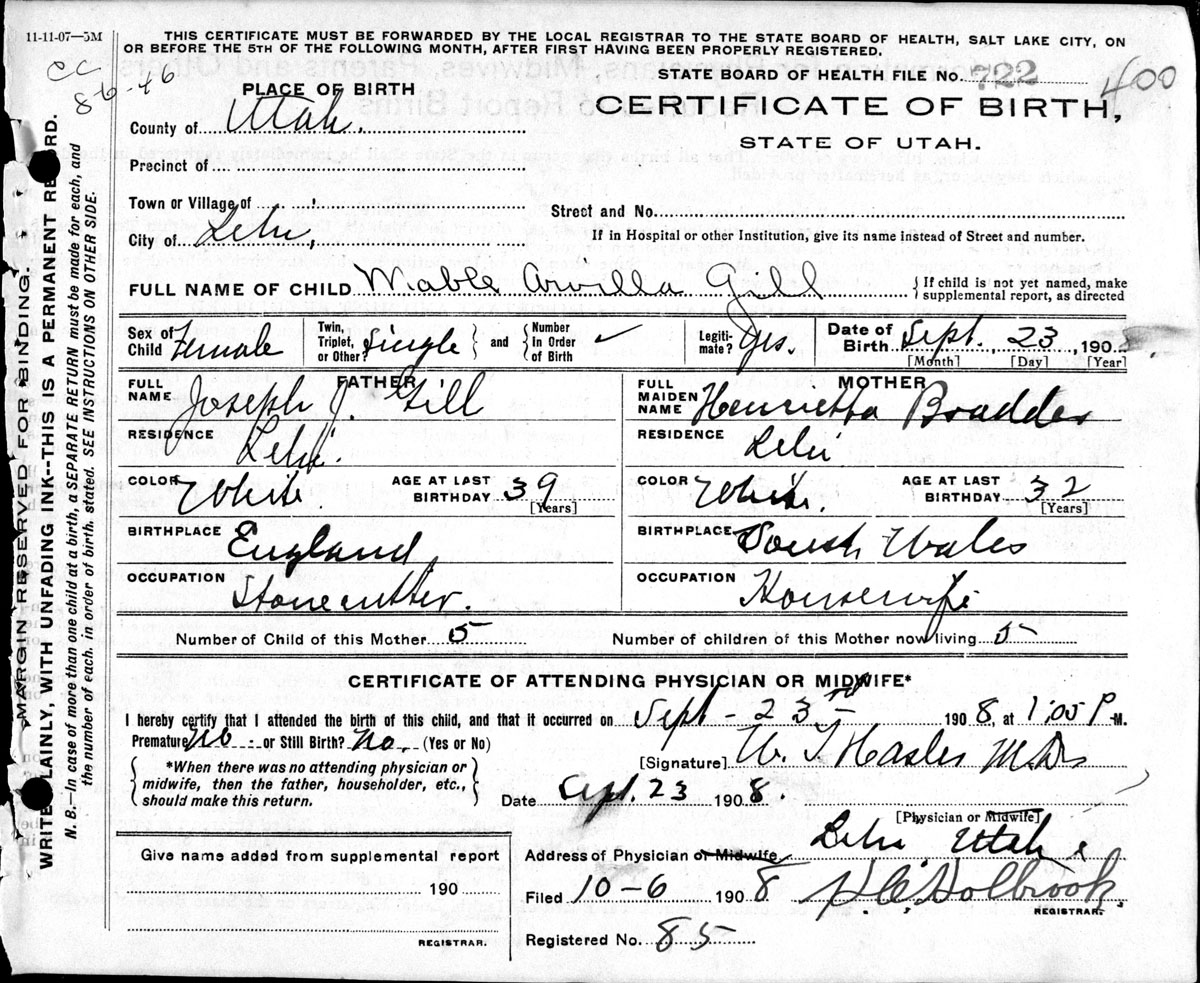 11-11-07—5M
THIS CERTIFICATE MUST BE FORWARDED BY THE LOCAL REGISTRAR TO THE STATE BOARD OF HEALTH, SALT LAKE CITY, ON
OR BEFORE THE 5TH OF THE FOLLOWING MONTH, AFTER FIRST HAVING BEEN PROPERLY REGISTERED.
CC
8-6-46
STATE BOARD OF HEALTH FILE No. 722
400
PLACE OF BIRTH
CERTIFICATE OF BIRTH,
STATE OF UTAH.
County of Utah.
Precinct of
Town or Village of
Street and No.
City of Lehi,
If in Hospital or other Institution, give its name instead of Street and number.
FULL NAME OF CHILD Mable Arvilla Gill { If child is not yet named, make
supplemental report, as directed
Sex of Child Female
Twin, Triplet, or Other? Single } and { Number In Order of Birth ✓
Legiti- mate? Yes.
Date of Birth Sept. 23, 190
[Month] [Day] [Year]
FATHER
FULL NAME Joseph J. Gill
RESIDENCE Lehi.
COLOR White. AGE AT LAST BIRTHDAY 39 [Years]
BIRTHPLACE England
OCCUPATION Stonecutter.
MOTHER
FULL MAIDEN NAME Henrietta
RESIDENCE Lehi
COLOR White. AGE AT LAST BIRTHDAY 32 [Years]
BIRTHPLACE South Wales
OCCUPATION Housewife
Number of Child of this Mother 5 Number of children of this Mother now living 5
CERTIFICATE OF ATTENDING PHYSICIAN OR MIDWIFE*
I hereby certify that I attended the birth of this child, and that it occurred on Sept - 23rd 1908, at 1:05 P-M.
Premature No or Still Birth? No. (Yes or No)
[Signature] W. T. Hasler M.D.
{ *When there was no attending physician or
midwife, then the father, householder, etc.,
should make this return. }
Date Sept. 23 1908.
[Physician or Midwife]
Give name added from supplemental report
190
REGISTRAR.
Address of Physician or Midwife Lehi Utah
Filed 10-6 1908 H.C. Holbrook.
REGISTRAR.
Registered No. 85
MARGIN RESERVED FOR BINDING.
WRITE PLAINLY, WITH UNFADING INK--THIS IS A PERMANENT RECORD.
N. B.—In case of more than one child at a birth, a SEPARATE RETURN must be made for each, and
the number of each. in order of birth. stated. SEE INSTRUCTIONS ON OTHER SIDE.